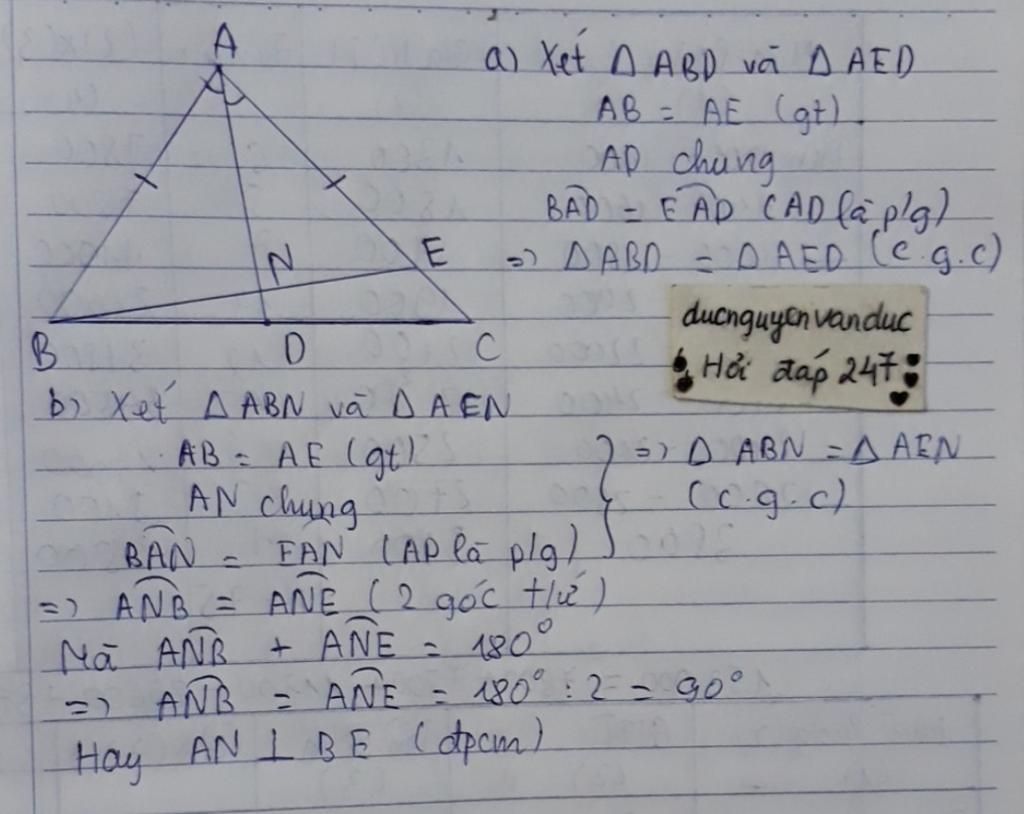 A
N
E
B
D
C
a) Xét Δ ABD và Δ AED
AB = AE (gt)
AD chung
BAD̂ = EAD̂ (AD là p/g)
=> Δ ABD = Δ AED (c.g.c)
ducnguyenvanduc
Hỏi đáp 247
b) Xét Δ ABN và Δ AEN
AB = AE (gt)
AN chung
BAN̂ = EAN̂ (AD là p/g)
=> Δ ABN = Δ AEN
(c.g.c)
=> ANB̂ = ANÊ (2 góc t/ứ)
Mà ANB̂ + ANÊ = 180°
=> ANB̂ = ANÊ = 180° : 2 = 90°
Hay AN ⊥ BE (đpcm)